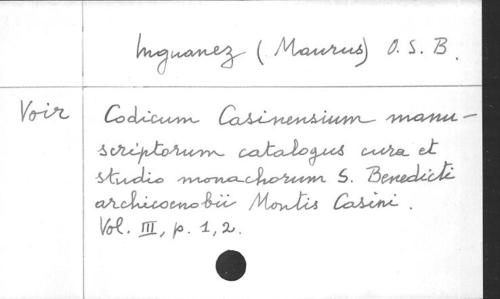 Inguanez (Maurus) O. S. B.
Voir Codicum Casinensium manu-
scriptorum catalogus cura et
studio monachorum S. Benedicti
archicoenobii Montis Casini.
Vol. III, p. 1, 2.